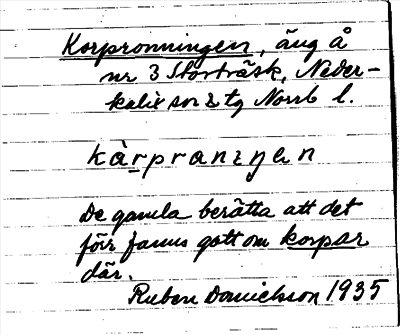 Korpronningen, äng å
nr 3 Storträsk, Neder-
kalix sn & tg Norrb l.
kàrpranıŋen
De gamla berätta att det
förr fanns gott om korpar
där.
Ruben Danielsson 1935